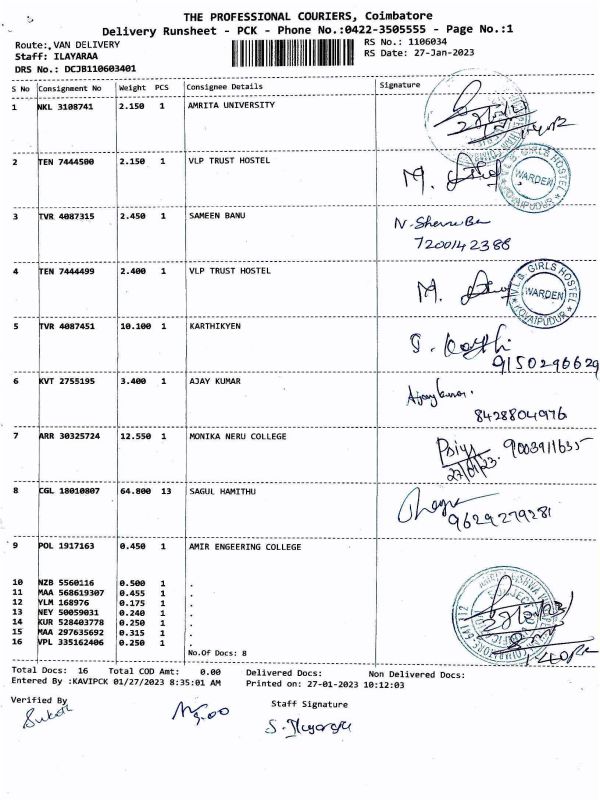 THE PROFESSIONAL COURIERS, Coimbatore
Delivery Runsheet - PCK - Phone No.:0422-3505555 - Page No.:1
Route: VAN DELIVERY
RS No.: 1106034
Staff: ILAYARAA
RS Date: 27-Jan-2023
DRS No.: DCJB110603401
S No Consignment No Weight PCS Consignee Details Signature
1 NKL 3108741 2.150 1 AMRITA UNIVERSITY
2 TEN 7444500 2.150 1 VLP TRUST HOSTEL
M.
V.L.B. GIRLS HOSTEL
WARDEN
KOVAIPUDUR
3 TVR 4087315 2.450 1 SAMEEN BANU
7200142388
4 TEN 7444499 2.400 1 VLP TRUST HOSTEL
M.
V.L.B. GIRLS HOSTEL
WARDEN
KOVAIPUDUR
5 TVR 4087451 10.100 1 KARTHIKYEN
9150296629
6 KVT 2755195 3.400 1 AJAY KUMAR
Ajaykumar.
8428804976
7 ARR 30325724 12.550 1 MONIKA NERU COLLEGE
Priya 9003911635
27/01/23.
8 CGL 18010807 64.800 13 SAGUL HAMITHU
9629279281
9 POL 1917163 0.450 1 AMIR ENGEERING COLLEGE
10 NZB 5560116 0.500 1 .
11 MAA 568619307 0.455 1 .
12 YLM 168976 0.175 1 .
13 NEY 50059031 0.240 1 .
14 KUR 528403778 0.250 1 .
15 MAA 297635692 0.315 1 .
16 VPL 335162406 0.250 1 .
No.Of Docs: 8
Total Docs: 16 Total COD Amt: 0.00 Delivered Docs: Non Delivered Docs:
Entered By :KAVIPCK 01/27/2023 8:35:01 AM Printed on: 27-01-2023 10:12:03
Verified By
Staff Signature